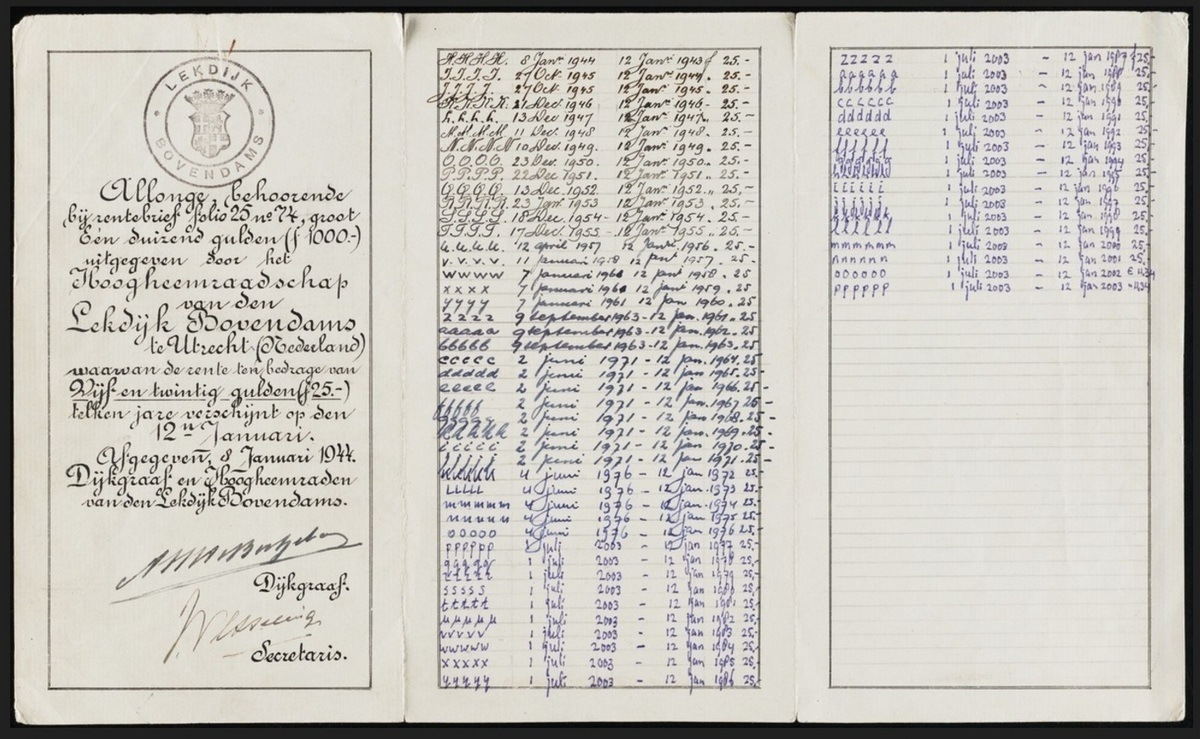 LEKDIJK
BOVENDAMS
Allonge, behoorende
bij rentebrief folio 25 no 74, groot
Eén duizend gulden (ƒ 1000.-)
uitgegeven door het
Hoogheemraadschap
van den
Lekdijk Bovendams
te Utrecht (Nederland)
waarvan de rente ten bedrage van
Vijf en twintig gulden (ƒ 25.-)
telken jare verschijnt op den
12n Januari.
Afgegeven, 8 Januari 1944.
Dijkgraaf en Hoogheemraden
van den Lekdijk Bovendams.
Dijkgraaf.
Secretaris.
H.H.H.H. 8 Janr. 1944 12 Janr. 1943 ƒ 25.-
I.I.I.I. 27 Oct. 1945 12 Janr. 1944. 25.-
J.J.J.J. 27 Oct. 1945 12 Janr. 1945. 25.-
K.K.K.K. 21 Dec. 1946 12 Janr. 1946- 25.-
L.L.L.L. 13 Dec 1947 12 Janr. 1947. 25.-
M.M.M.M. 11 Dec. 1948 12 Janr. 1948. 25.-
N.N.N.N 10 Dec. 1949. 12 Janr. 1949. 25.-
O.O.O.O. 23 Dec. 1950. 12 Janr. 1950. 25.-
P.P.P.P. 22 Dec 1951. 12 Janr. 1951. 25.-
Q.Q.Q.Q. 13 Dec. 1952. 12 Janr. 1952. 25.-
R.R.R.R. 23 Janr 1953 12 Janr. 1953. 25.-
S.S.S.S. 18 Dec. 1954- 12 Janr. 1954. 25.-
T.T.T.T. 17 Dec. 1955- 12 Janr. 1955. 25.-
u.u.u.u. 12 april 1957 12 Janr. 1956. 25.-
v.v.v.v. 11 januari 1958 12 jan 1957. 25.-
wwww 7 januari 1960 12 jan 1958. 25
xxxx 7 januari 1960 12 jan 1959. 25
yyyy 7 januari 1961 12 jan 1960. 25
zzzz 9 september 1963- 12 jan. 1961. 25
aaaaa 9 september 1963- 12 jan. 1962. 25
bbbbb 9 september 1963- 12 jan. 1963. 25
ccccc 2 juni 1971- 12 jan. 1964. 25
ddddd 2 juni 1971- 12 jan 1965. 25-
eeeee 2 juni 1971- 12 jan 1966. 25-
fffff 2 juni 1971- 12 jan. 1967 25-
ggggg 2 juni 1971- 12 jan 1968. 25-
hhhhh 2 juni 1971- 12 jan. 1969. 25-
iiiii 2 juni 1971- 12 jan 1970. 25-
jjjjj 2 juni 1971- 12 jan 1971. 25-
kkkkk 4 juni 1976 - 12 jan 1972 25.-
LLLLL 4 juni 1976 - 12 jan 1973 25.-
mmmmm 4 juni 1976 - 12 jan 1974 25.-
nnnnn 4 juni 1976 - 12 jan 1975 25.-
ooooo 4 juni 1976 - 12 jan 1976 25.-
ppppp 1 juli 2003 - 12 jan 1977 25,-
qqqqq 1 juli 2003 - 12 jan 1978 25,-
rrrrr 1 juli 2003 - 12 jan 1979 25,-
sssss 1 juli 2003 - 12 jan 1980 25,-
ttttt 1 juli 2003 - 12 jan 1981 25,-
uuuuu 1 juli 2003 - 12 jan 1982 25,-
vvvvv 1 juli 2003 - 12 jan 1983 25,-
wwwww 1 juli 2003 - 12 jan 1984 25,-
xxxxx 1 juli 2003 - 12 jan 1985 25,-
yyyyy 1 juli 2003 - 12 jan 1986 25,-
zzzzz 1 juli 2003 - 12 jan 1987 ƒ 25,-
aaaaaa 1 juli 2003 - 12 jan 1988 25,-
bbbbbb 1 juli 2003 - 12 jan 1989 25,-
cccccc 1 juli 2003 - 12 jan 1990 25,-
dddddd 1 juli 2003 - 12 jan 1991 25,-
eeeeee 1 juli 2003 - 12 jan 1992 25,-
ffffff 1 juli 2003 - 12 jan 1993 25,-
gggggg 1 juli 2003 - 12 jan 1994 25,-
hhhhhh 1 juli 2003 - 12 jan 1995 25,-
iiiiii 1 juli 2003 - 12 jan 1996 25,-
jjjjjj 1 juli 2003 - 12 jan 1997 25,-
kkkkkk 1 juli 2003 - 12 jan 1998 25,-
llllll 1 juli 2003 - 12 jan 1999 25,-
mmmmmm 1 juli 2003 - 12 jan 2000 25,-
nnnnnn 1 juli 2003 - 12 jan 2001 25,-
oooooo 1 juli 2003 - 12 jan 2002 € 11,34
pppppp 1 juli 2003 - 12 jan 2003 - 11,34